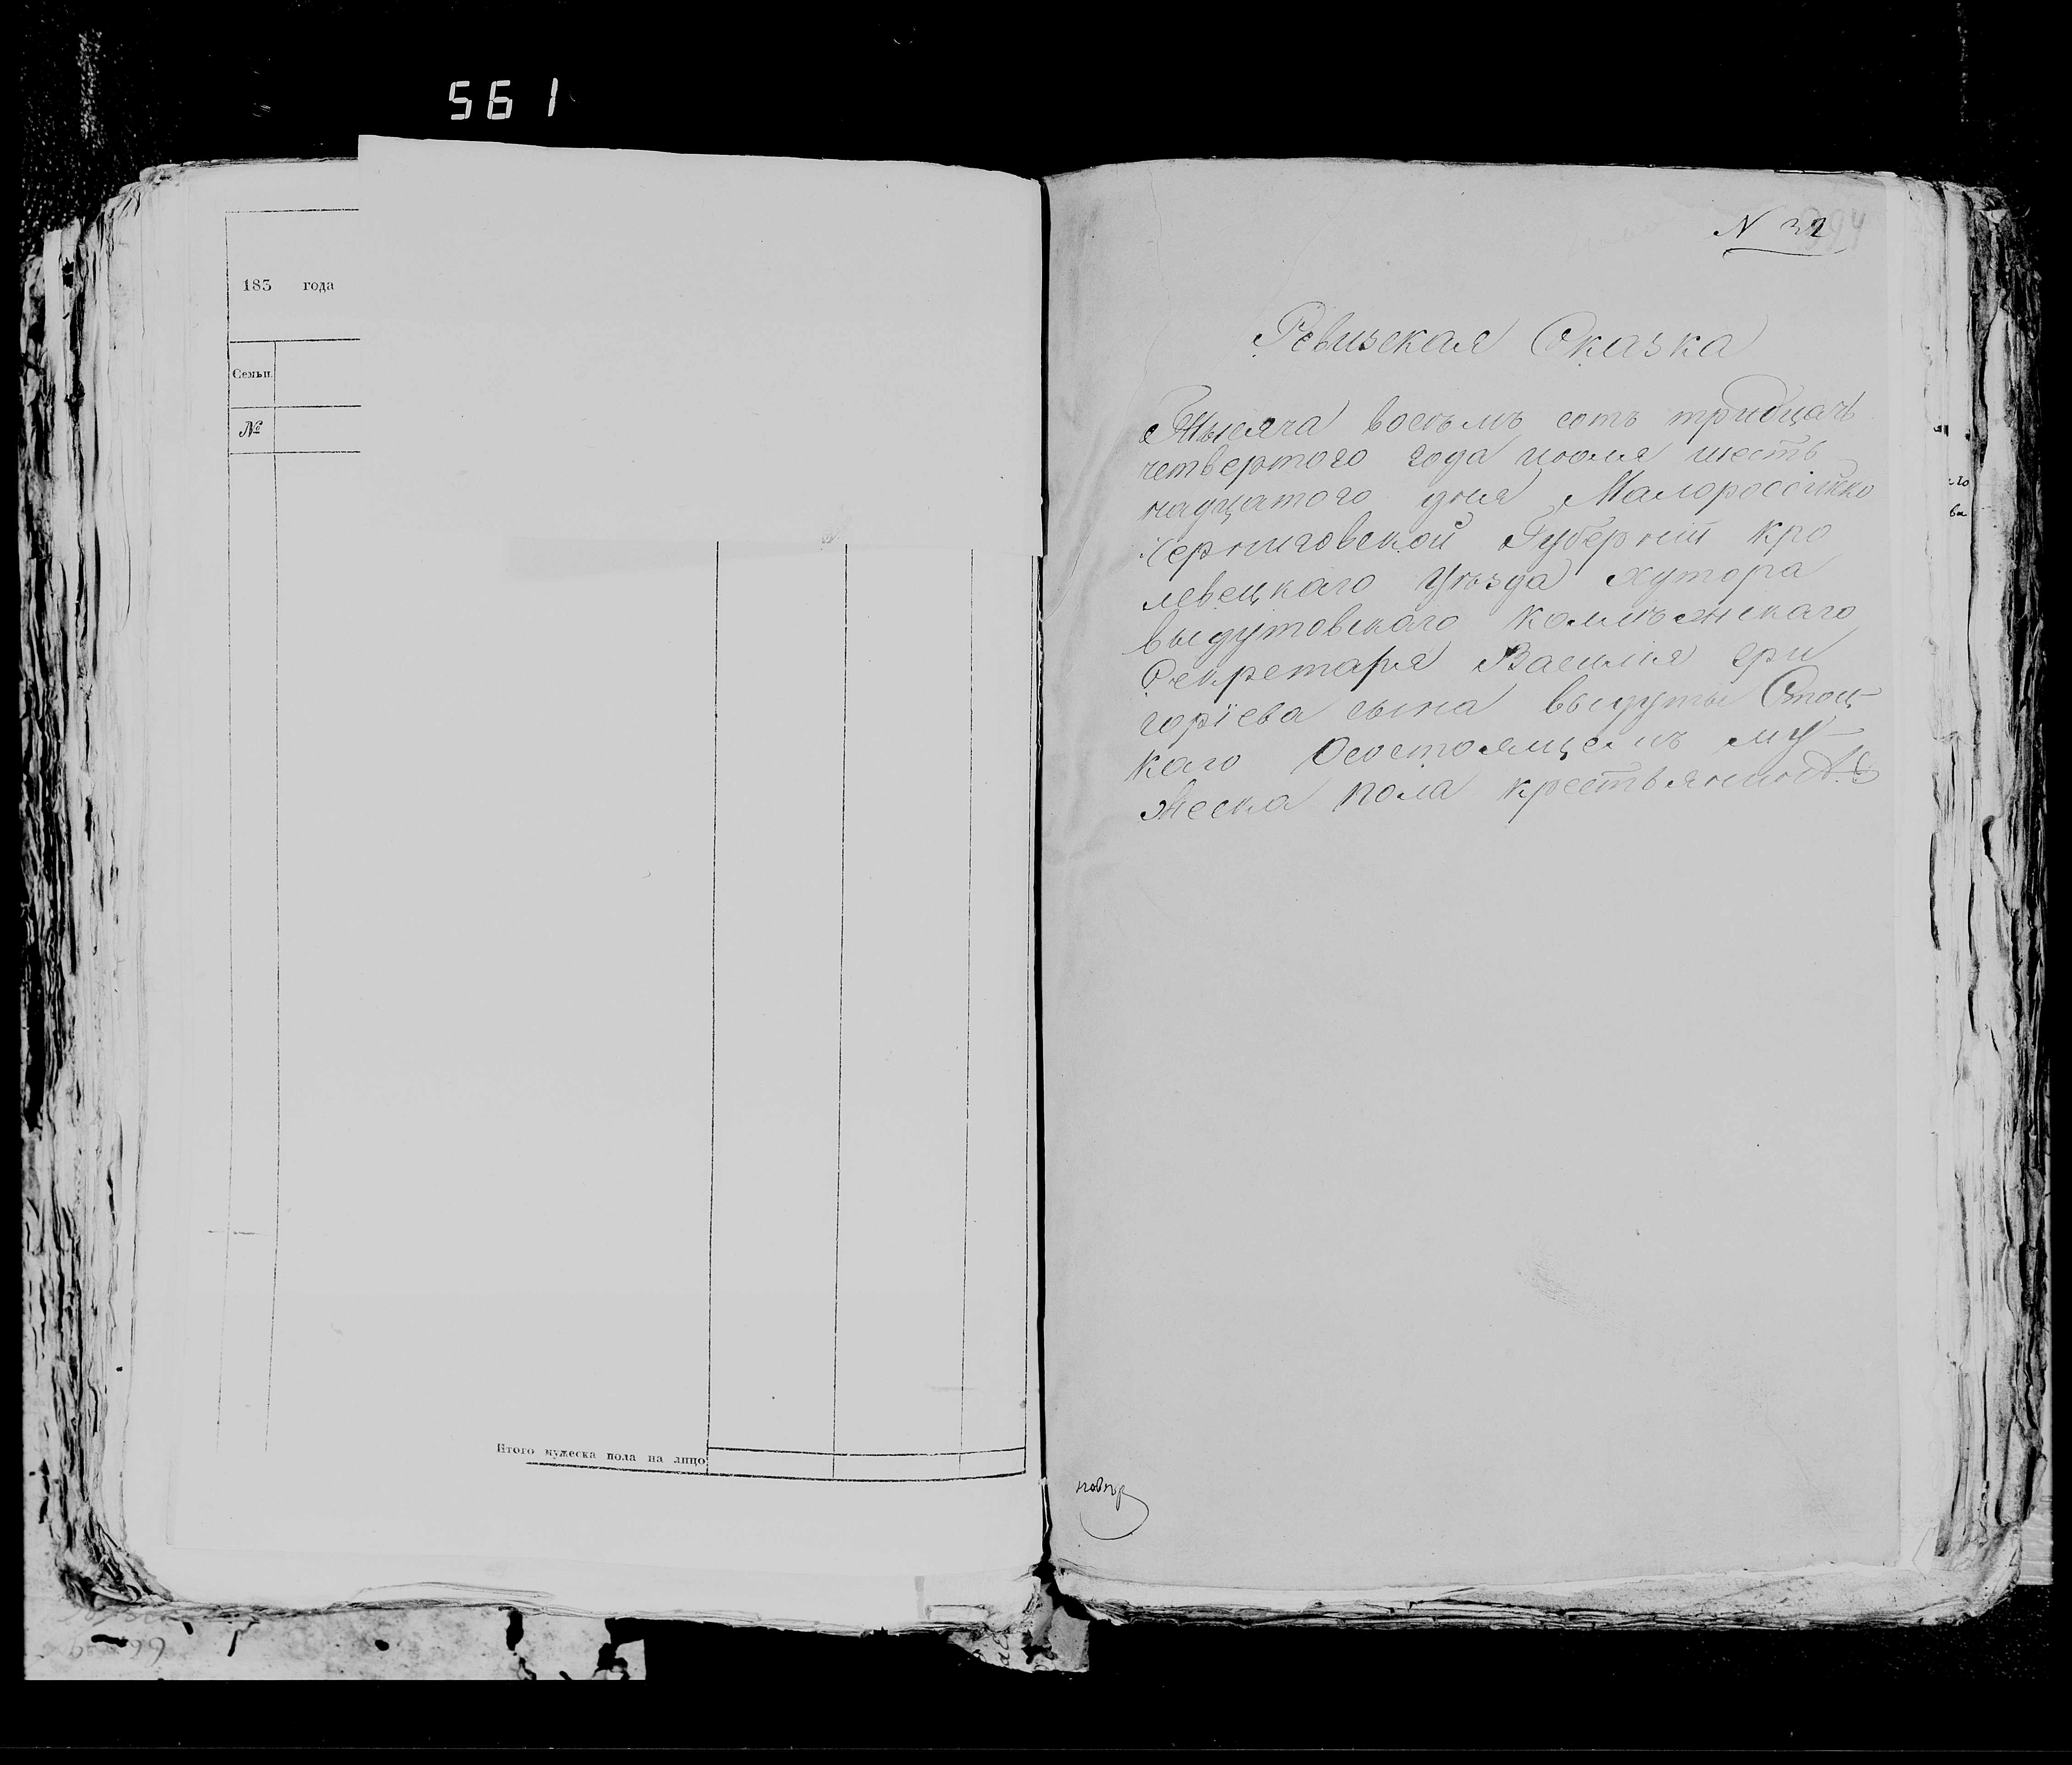 561
183 года
Семьи.
№
Итого мужеска пола на лицо
N 32
394
Ревизская Сказка
Тысяча восемъ сотъ тридцать
четвертого года июля шесть
надцатого дня Малороссійско
Черниговской Губерніи Кро
левецкаго Уъзда хутора
выдутовскаго Коллъжскаго
Секретаря Василия гри
горіева сына выдуты Стоц-
каго Осостоящемъ му-
жеска пола крестьянино